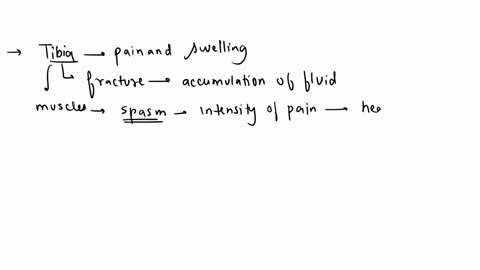 → Tibia → pain and swelling
↳ fracture → accumulation of fluid
muscles → spasm → intensity of pain → hea